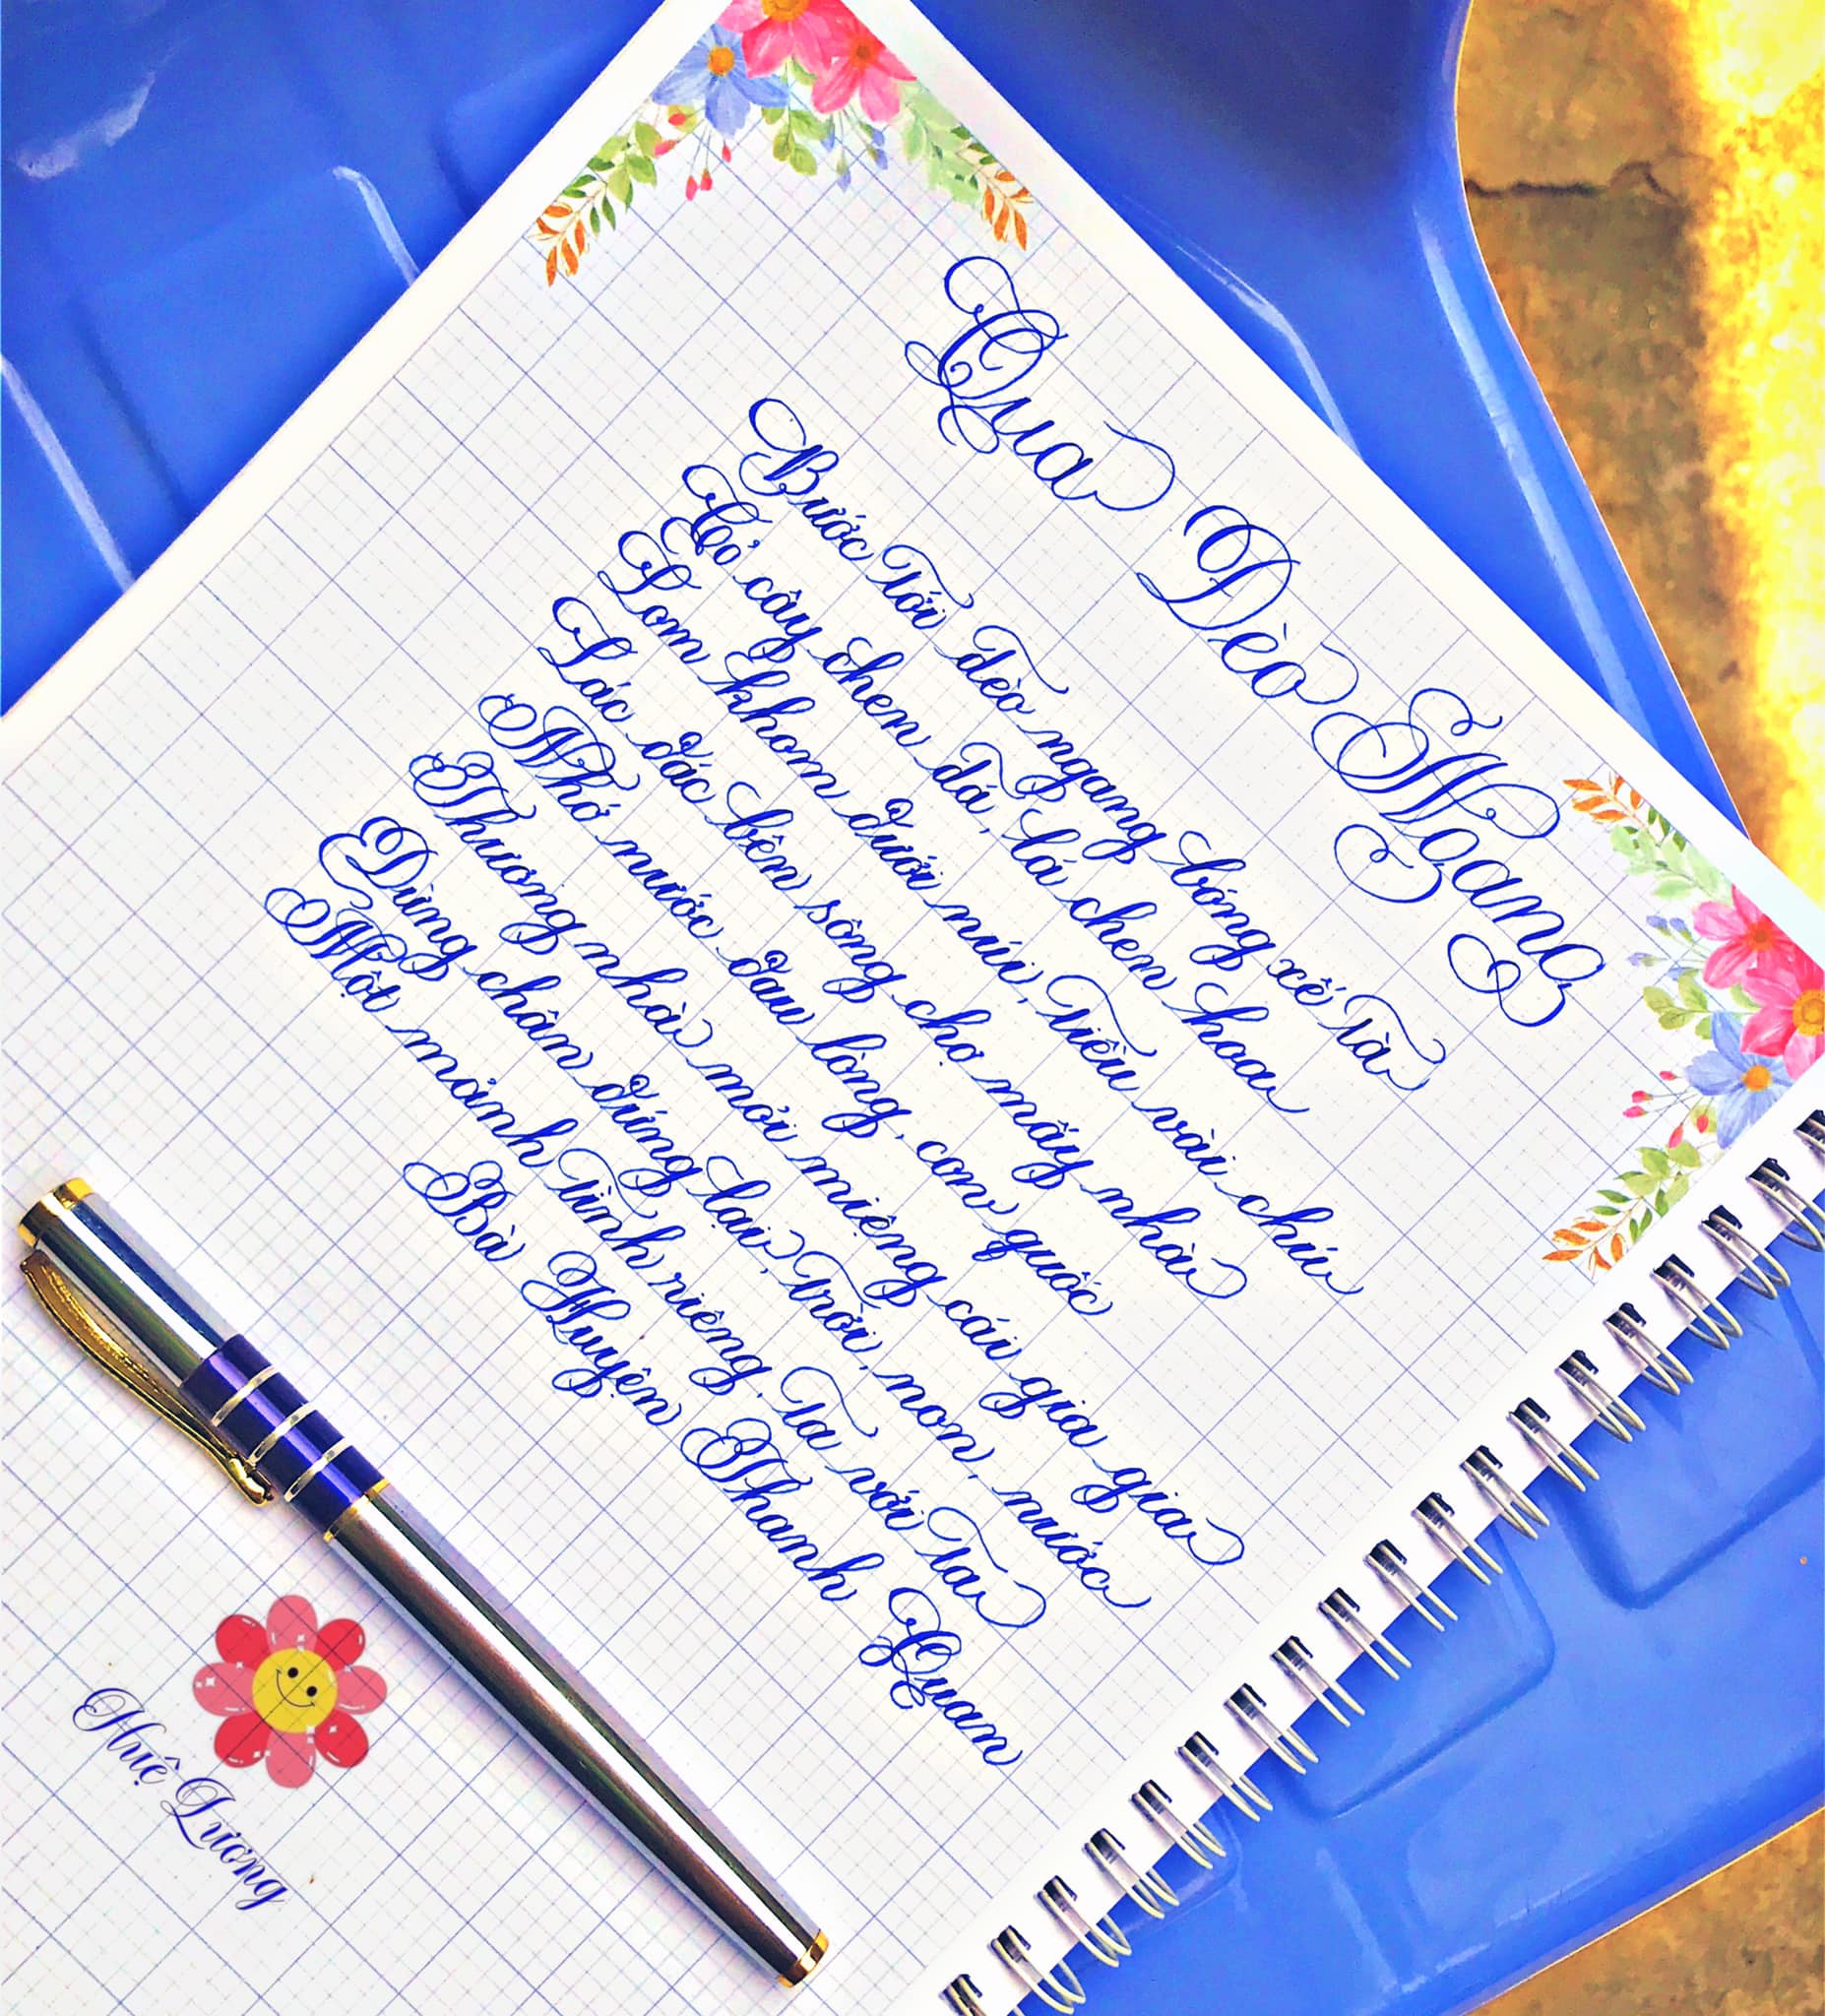 Qua Đèo Ngang
Bước tới đèo ngang bóng xế tà
Cỏ cây chen đá, lá chen hoa
Lom khom dưới núi, tiều vài chú
Lác đác bên sông chợ mấy nhà
Nhớ nước đau lòng, con quốc
Thương nhà mỏi miệng cái gia gia
Dừng chân đứng lại, trời, non, nước
Một mảnh tình riêng, ta với ta
Bà Huyện Thanh Quan
Huệ Lương